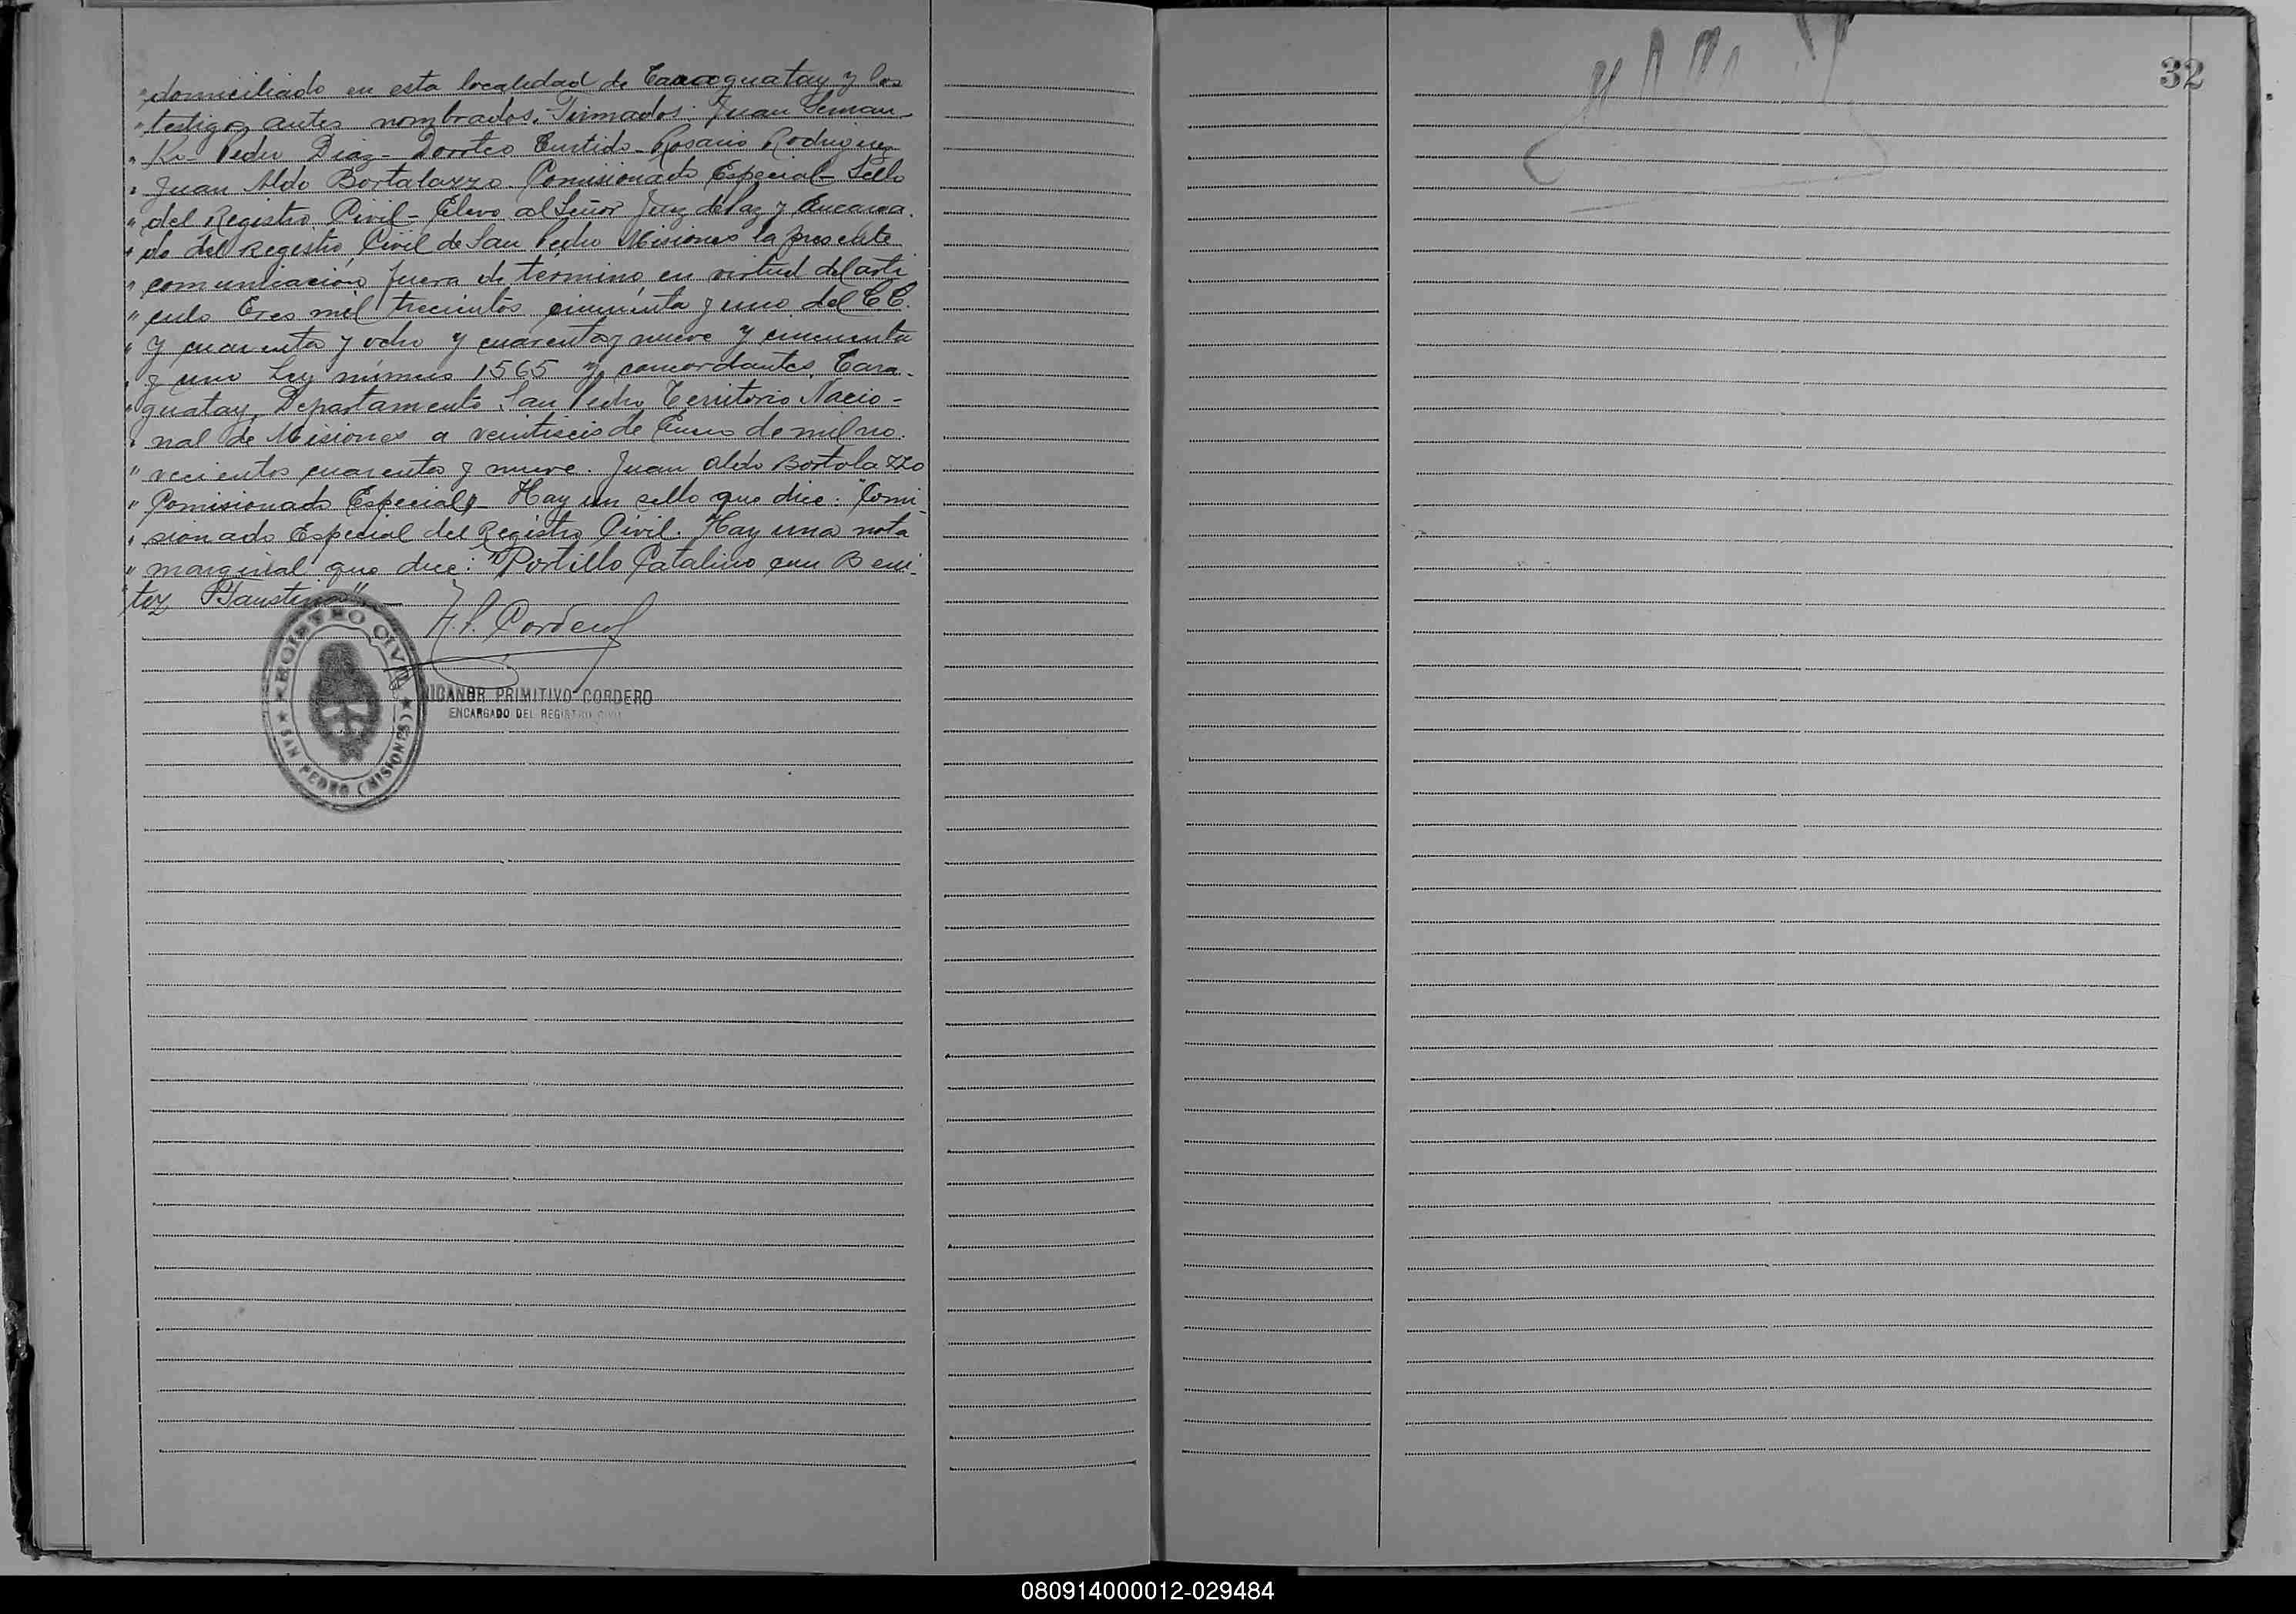 " domiciliado en esta localidad de Caraguatay y los
" testigos antes nombrados. Firmados: Juan Seman
" Ko - Pedro Diaz - Doroteo Curtido - Rosario Rodriguez
" Juan Aldo Bortalazzo. Comisionado Especial - Sello
" del Registro Civil - Elevo al Señor Juez de Paz y Encarga.
" do del Registro Civil de San Pedro Misiones la presente
" comunicación fuera de término en virtud del artí
" culo Tres mil trecientos cincuenta y uno del C.C.
" y cuarenta y ocho y cuarenta y nueve y cincuenta
" y uno Ley número 1565 y concordantes. Cara-
" guatay, Departamento San Pedro Territorio Nacio-
" nal de Misiones a veintiseis de Enero de mil no.
" vecientos cuarenta y nueve. Juan Aldo Bortolazzo
" Comisionado Especial - Hay un sello que dice: "Comi-
" sionado Especial del Registro Civil. Hay una nota
" marginal que dice: "Portillo Catalino con Beni-
" tez Faustina"
N. P. Cordero
REGISTRO CIVIL
SAN PEDRO (MISIONES)
NICANOR PRIMITIVO CORDERO
ENCARGADO DEL REGISTRO CIVIL
32
080914000012-029484